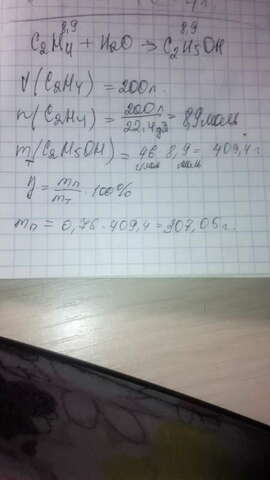 8,9 8,9
C2H4 + H2O → C2H5OH
V(C2H4) = 200л.
n(C2H4) = 200л / 22.4 дм3 = 8,9 моль
mт(C2H5OH) = 46 г/моль · 8,9 моль = 409,4 г
η = mп / mт · 100%
mп = 0,75 · 409,4 = 307,05 г.